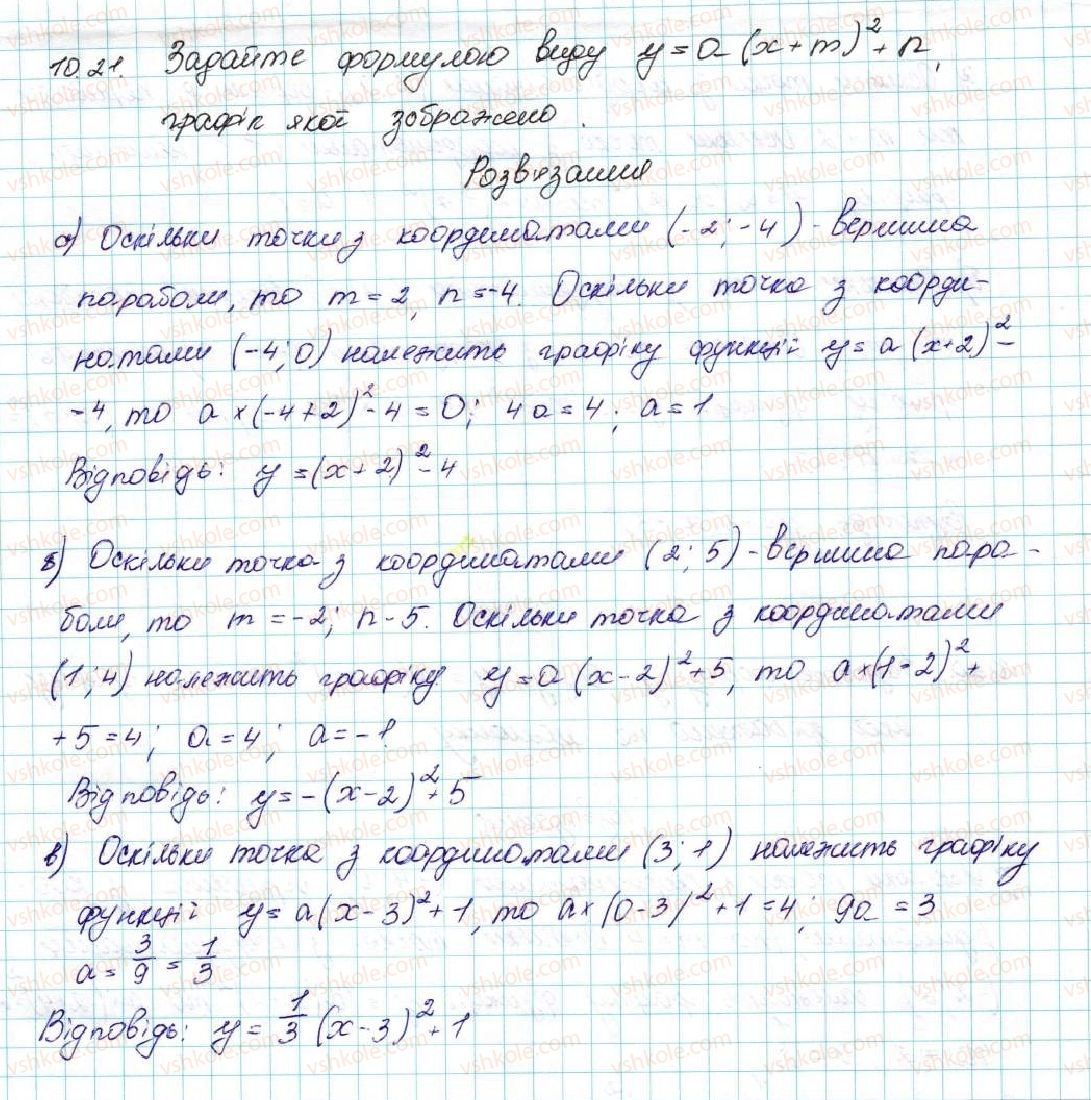 10.21. Задайте формулою виду y=a(x+m)²+n,
графік якої зображено.
Розв'язання
а) Оскільки точки з координатами (-2;-4) - вершина
параболи, то m=2, n=-4. Оскільки точка з коорди-
натами (-4;0) належить графіку функції y=a(x+2)²-
-4, то a×(-4+2)²-4=0; 4a=4; a=1
Відповідь: y=(x+2)²-4
б) Оскільки точка з координатами (2;5) - вершина пара-
боли, то m=-2; n-5. Оскільки точка з координатами
(1;4) належить графіку y=a(x-2)²+5, то a×(1-2)²+
+5=4; a=4; a=-1.
Відповідь: y=-(x-2)²+5
в) Оскільки точка з координатами (3;1) належить графіку
функції y=a(x-3)²+1, то a×(0-3)²+1=4; 9a=3
a=3/9=1/3
Відповідь: y=1/3(x-3)²+1